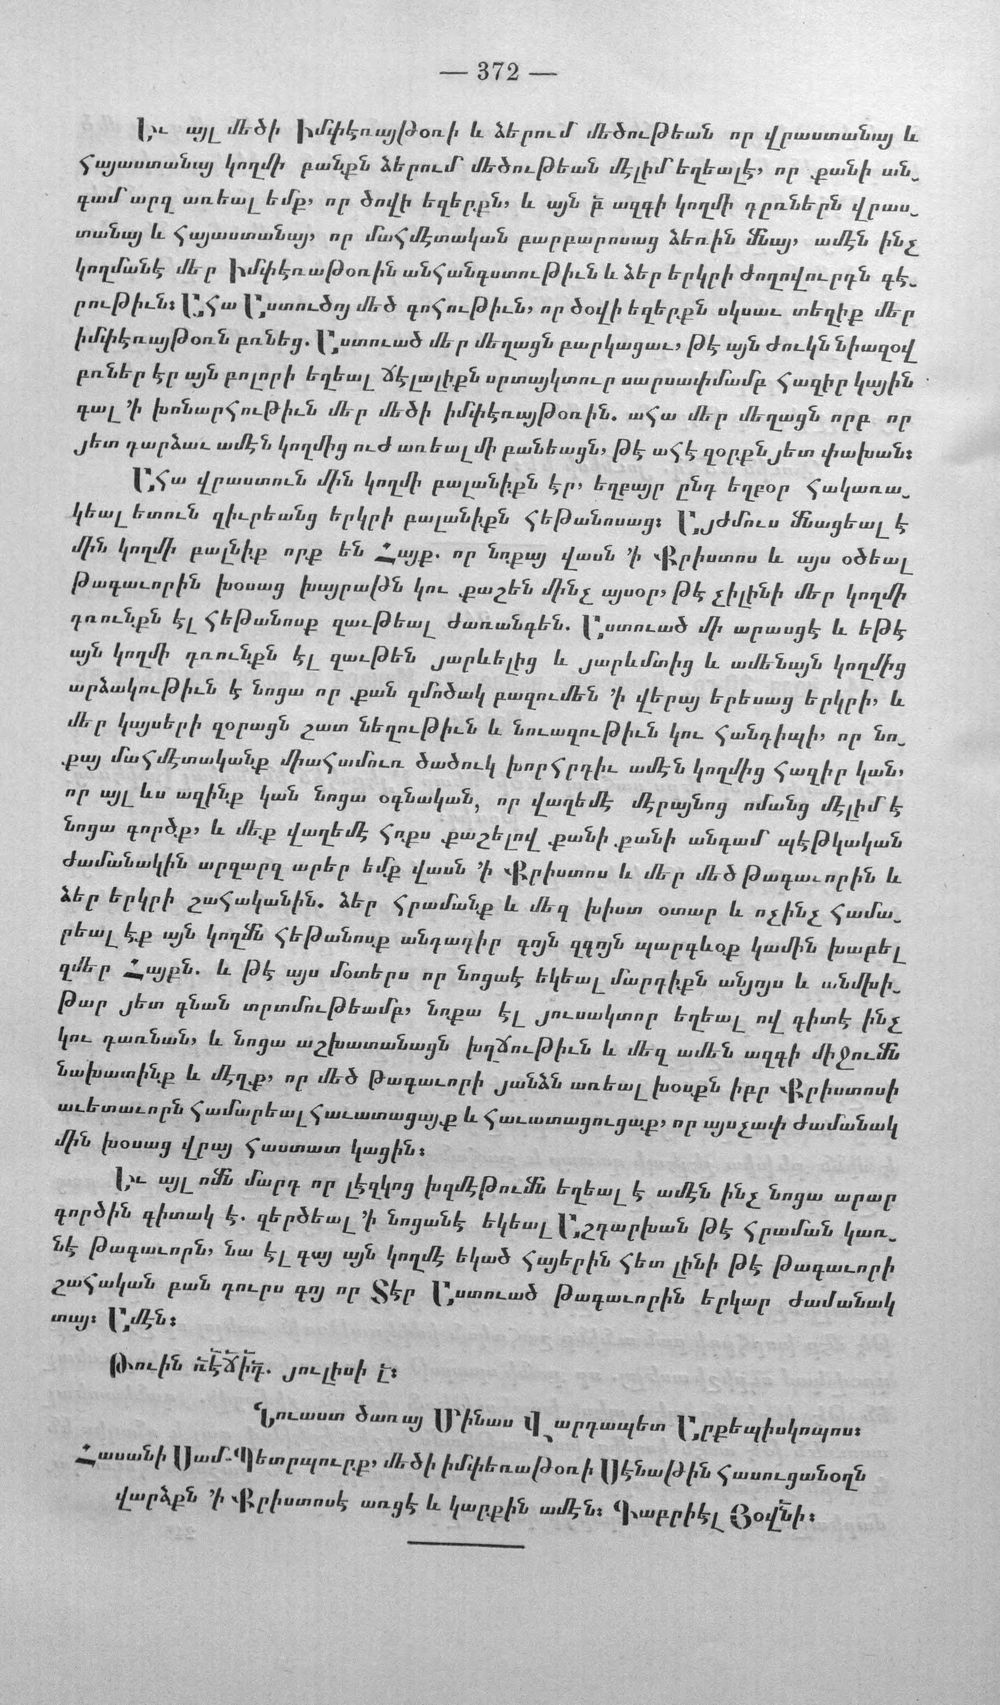 — 372 —
Եւ այլ մեծի Իմփէռայթօռի և ձերում մեծութեան որ վրաստանայ և
Հայաստանայ կողմի բանքն ձերում մեծութեան մէլիմ եղեալէ, որ քանի ան֊
գամ արզ առեալ եմք, որ ծովի եզերքն, և այն բ̃ ազգի կողմի դըռներն վրաս֊
տանայ և Հայաստանայ, որ մահմէտական բարբարոսաց ձեռին մ̃նայ, ամէն ինչ
կողմանէ մեր Իմփէռաթօռին անհանգստութիւն և ձեր երկրի ժողովուրդն գէ֊
րութիւն։ Ահա Աստուծոյ մեծ գոհութիւն, որ ծօվի եզերքն սկսաւ տեղիք մեր
իմփէռայթօռն բռնեց. Աստուած մեր մեղացն բարկացաւ, թէ այն ժուկն նիազօվ
բռներ էր այն բոլորի եղեալ ճէլալիքն սրտայկտուր սարսափմամբ հազիր կային
գալ ՚ի խոնարհութիւն մեր մեծի իմփէռայթօռին. ահա մեր մեղացն որբ որ
յետ դարձաւ ամէն կողմից ուժ առեալ մի բանեացն, թէ ահէ զօրքն յետ փախան։
Ահա վրաստուն մին կողմի բալանիքն էր, եղբայր ընդ եղբօր հակառա֊
կեալ ետուն զիւրեանց երկրի բալանիքն հեթանոսաց։ Այժմուս մ̃նացեալ է
մին կողմի բալնիք որք են Հայք. որ նոքայ վասն ՚ի Քրիստոս և այս օծեալ
թագաւորին խօսաց խայրաթն կու քաշեն մինչ այսօր, թէ չիլինի մեր կողմի
դռունքն էլ հեթանոսք զաւթեալ ժառանգեն. Աստուած մի արասցէ և եթէ
այն կողմի դռունքն էլ զաւթեն յարևելից և յարևմտից և ամենայն կողմից
արձակութիւն է նոցա որ քան զմոծակ բազումեն ՚ի վերայ երեսաց երկրի, և
մեր կայսերի զօրացն շատ նեղութիւն և նուազութիւն կու հանդիպի, որ նո֊
քայ մահմէտականք միահամուռ ծածուկ խորհրդիւ ամէն կողմից հազիր կան,
որ այլ ևս ազինք կան նոցա օգնական, որ վաղեմէ մէրայնոց ոմանց մէլիմ է
նոցա գործք, և մեք վաղեմէ հոքս քաշելով քանի քանի անգամ պէթկական
ժամանակին արզարզ արեր եմք վասն ՚ի Քրիստոս և մեր մեծ թագաւորին և
ձեր երկրի շահականին. ձեր հրամանք և մեզ խիստ օտար և ոչինչ համա֊
րեալ էք այն կողմ̃ն հեթանոսք անդադիր գոյն զգոյն պարգևօք կամին խաբել
զմեր Հայքն. և թէ այս մօտերս որ նոցաէ եկեալ մարդիքն անյոյս և անմխի֊
թար յետ գնան տրտմութեամբ, նոքա էլ յուսակտոր եղեալ ով գիտէ ինչ
կու դառնան, և նոցա աշխատանացն խղճութիւն և մեզ ամեն ազգի միջում̃ն
նախատինք և մէղք, որ մեծ թագաւորի յանձն առեալ խօսքն իբր Քրիստոսի
աւետաւորն համարեալ հաւատացայք և հաւատացուցաք, որ այսչափ ժամանակ
մին խօսաց վրայ հաստատ կացին։
Եւ այլ ոմ̃ն մարդ որ լէզկոց խզմէթում̃ն եղեալ է ամէն ինչ նոցա արար
գործին գիտակ է. զերծեալ ՚ի նոցանէ եկեալ Աշդարխան թէ հրաման կառ֊
նէ թագաւորն, նա էլ գայ այն կողմէ եկած հայերին հետ լինի թէ թագաւորի
շահական բան դուրս գոյ որ Տէր Աստուած թագաւորին երկար ժամանակ
տայ։ Ամէն։
Թուին ռ̃է̃ճ̃ի̃դ̃. յուլիսի է̃։
Նուաստ ծառայ Մինաս Վարդապետ Արքեպիսկոպոս։
Հասանի Սամ-Պետրպուրք, մեծի իմփեռաթօռի Սէնաթին հասուցանօղն
վարձքն ՚ի Քրիստոսէ առցէ և կարքին ամէն։ Գաբրիէլ Յօվ̃նի։